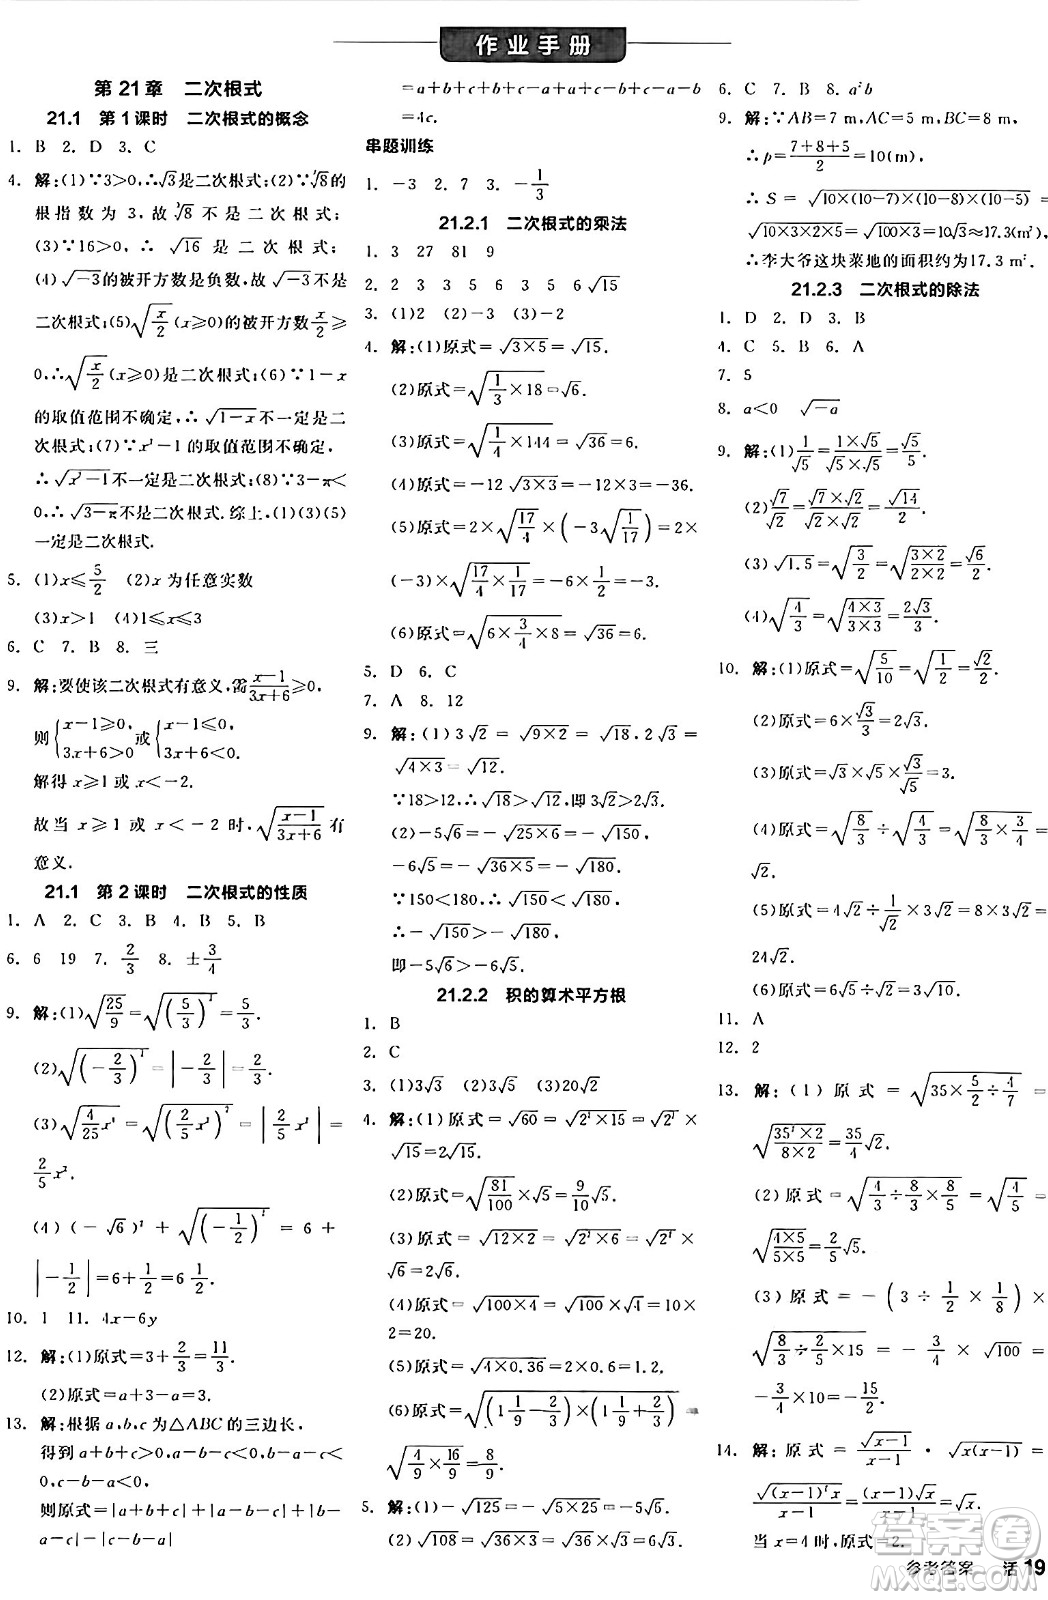 作业手册
第21章 二次根式
21.1 第1课时 二次根式的概念
1. B 2. D 3. C
4. 解:(1)∵3>0,∴√3是二次根式;(2)∵∛8的
根指数为3,故∛8不是二次根式;
(3)∵16>0,∴√16是二次根式;
(4)√(-3)的被开方数是负数,故不是
二次根式;(5)√(x/2)(x≥0)的被开方数≥
0,∴√(x/2)(x≥0)是二次根式;(6)∵1-x
的取值范围不确定,∴√(1-x)不一定是二
次根式;(7)∵x²-1的取值范围不确定,
∴√(x²-1)不一定是二次根式;(8)∵3-π<
0,∴√(3-π)不是二次根式.综上,(1)(3)(5)
一定是二次根式.
5. (1)x≤5/2 (2)x为任意实数
(3)x>1 (4)1≤x≤3
6. C 7. B 8. 三
9. 解:要使该二次根式有意义,需(x-1)/(3x+6)≥0,
则{x-1≥0, 3x+6>0 或{x-1≤0, 3x+6<0.
解得x≥1或x<-2.
故当x≥1或x<-2时,√((x-1)/(3x+6))有
意义.
21.1 第2课时 二次根式的性质
1. A 2. C 3. B 4. B 5. B
6. 6 19 7. 2/3 8. ±3/4
9. 解:(1)√(25/9)=√((5/3)²)=5/3.
(2)√((-2/3)²)=|-2/3|=2/3.
(3)√(4/25 x⁴)=√((2/5 x²)²)=|2/5 x²|=
2/5 x².
(4)(-√6)²+√((-1/2)²)=6+
|-1/2|=6+1/2=6 1/2.
10. 1 11. 4x-6y
12. 解:(1)原式=3+2/3=11/3.
(2)原式=a+3-a=3.
13. 解:根据a,b,c为△ABC的三边长,
得到a+b+c>0,a-b-c<0,b-a-c<
0,c-b-a<0,
则原式=|a+b+c|+|a-b-c|+|b-
a-c|-|c-b-a|
=a+b+c+b+c-a+a+c-b+c-a-b
=4c.
串题训练
1. -3 2. 7 3. -1/3
21.2.1 二次根式的乘法
1. 3 27 81 9
2. 2 3 5 6 3 5 6 5 6√15
3. (1)2 (2)-3 (3)-2
4. 解:(1)原式=√(3×5)=√15.
(2)原式=√(1/3×18)=√6.
(3)原式=√(1/4×144)=√36=6.
(4)原式=-12√(3×3)=-12×3=-36.
(5)原式=2×√(17/4)×(-3√(1/17))=2×
(-3)×√(17/4×1/17)=-6×1/2=-3.
(6)原式=√(6×3/4×8)=√36=6.
5. D 6. C
7. A 8. 12
9. 解:(1)3√2=√(9×2)=√18,2√3=
√(4×3)=√12.
∵18>12,∴√18>√12,即3√2>2√3.
(2)-5√6=-√(25×6)=-√150,
-6√5=-√(36×5)=-√180.
∵150<180,∴√150<√180,
∴-√150>-√180,
即-5√6>-6√5.
21.2.2 积的算术平方根
1. B
2. C
3. (1)3√3 (2)4√3 (3)20√2
4. 解:(1)原式=√60=√(2²×15)=√2²×
√15=2√15.
(2)原式=√(81/100)×√5=9/10√5.
(3)原式=√(12×2)=√(2²×6)=√2²×
√6=2√6.
(4)原式=√(100×4)=√100×√4=10×
2=20.
(5)原式=√(4×0.36)=2×0.6=1.2.
(6)原式=√((1 1/9-2/3)×(1 1/9+2/3))=
√(4/9×16/9)=8/9.
5. 解:(1)-√125=-√(5×25)=-5√5.
(2)√108=√(36×3)=√36×√3=6√3.
6. C 7. B 8. a²b
9. 解:∵AB=7 m,AC=5 m,BC=8 m,
∴p=(7+8+5)/2=10(m),
∴S=√(10×(10-7)(10-8)(10-5))=
√(10×3×2×5)=√(100×3)=10√3≈17.3(m²),
∴李大爷这块菜地的面积约为17.3 m².
21.2.3 二次根式的除法
1. D 2. D 3. B
4. C 5. B 6. A
7. 5
8. a<0 √(-a)
9. 解:(1)1/√5=(1×√5)/(√5×√5)=√5/5.
(2)√7/√2=(√7×√2)/(√2×√2)=√14/2.
(3)√1.5=√(3/2)=√((3×2)/(2×2))=√6/2.
(4)√(4/3)=√((4×3)/(3×3))=2√3/3.
10. 解:(1)原式=√(5/10)=√(1/2)=√2/2.
(2)原式=6×√3/3=2√3.
(3)原式=12×√3×√3/√5=36√5/5.
(4)原式=√(8/3)÷√(4/3)=√(8/3×3/4)=
√2.
(5)原式=4√2÷1/√2×3√2=8×3√2=
24√2.
(6)原式=6√5÷√5=6.
11. A
12. 2
13. 解:(1)原式=√(35×5/2÷4/7)=
√((35²×2)/(8×2))=35/4√2.
(2)原式=√(4/3÷8/3×8/5)=√(4/5)=
√((4×5)/(5×5))=2/5√5.
(3)原式=-(3÷1/2×1/8)×
√(8/3÷2/5×15)=-3/4×√100=
-3/4×10=-15/2.
14. 解:原式=√(x-1)/(x-1)·√(x(x-1))=
√((x-1)²x)/(x-1)=(x-1)√x/(x-1)=√x.
当x=4时,原式=√4=2.
参考答案 活19
答案圈
MXQE.COM